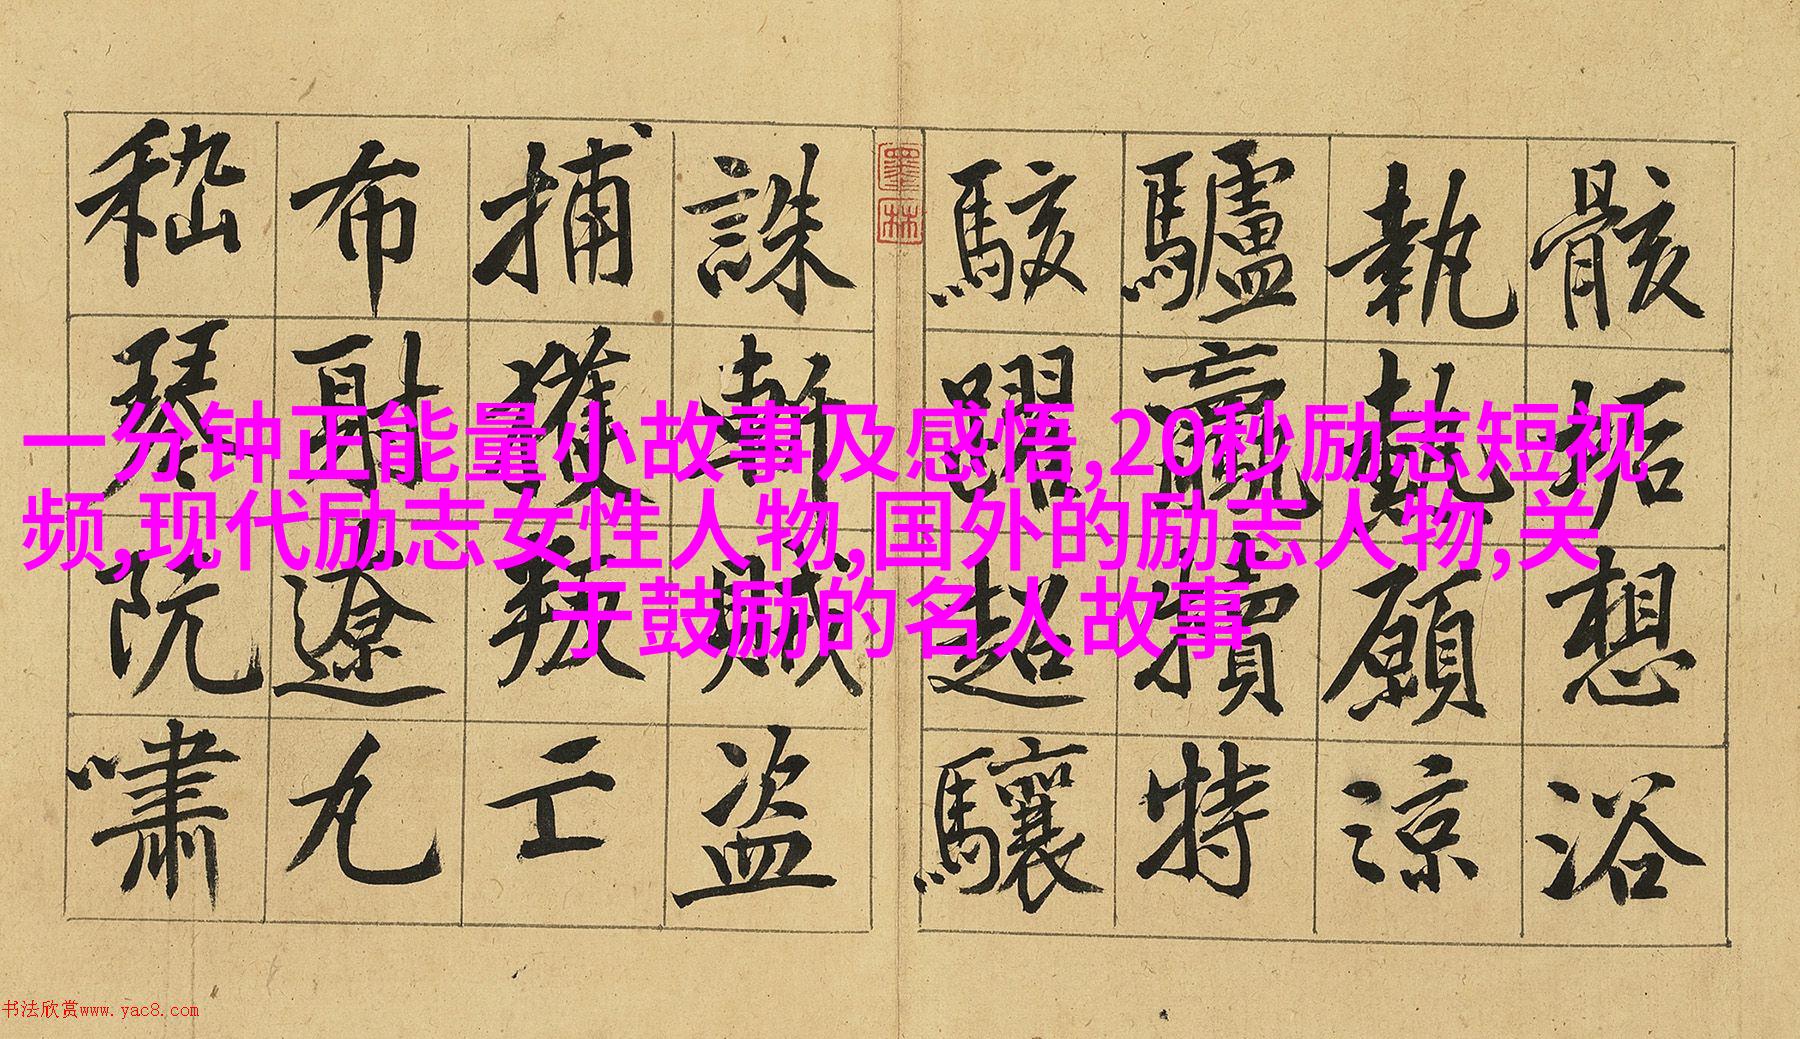 骸垢想浴
執熱願涼
驢驘犢特
駭躍超驤
墨林
誅斬賊盜
捕獲叛亡
布射遼丸
嵇琴阮嘯
一分钟正能量小故事及感悟,20秒励志短视
频,现代励志女性人物,国外的励志人物,关
于鼓励的名人故事
书法欣赏www.yac8.com